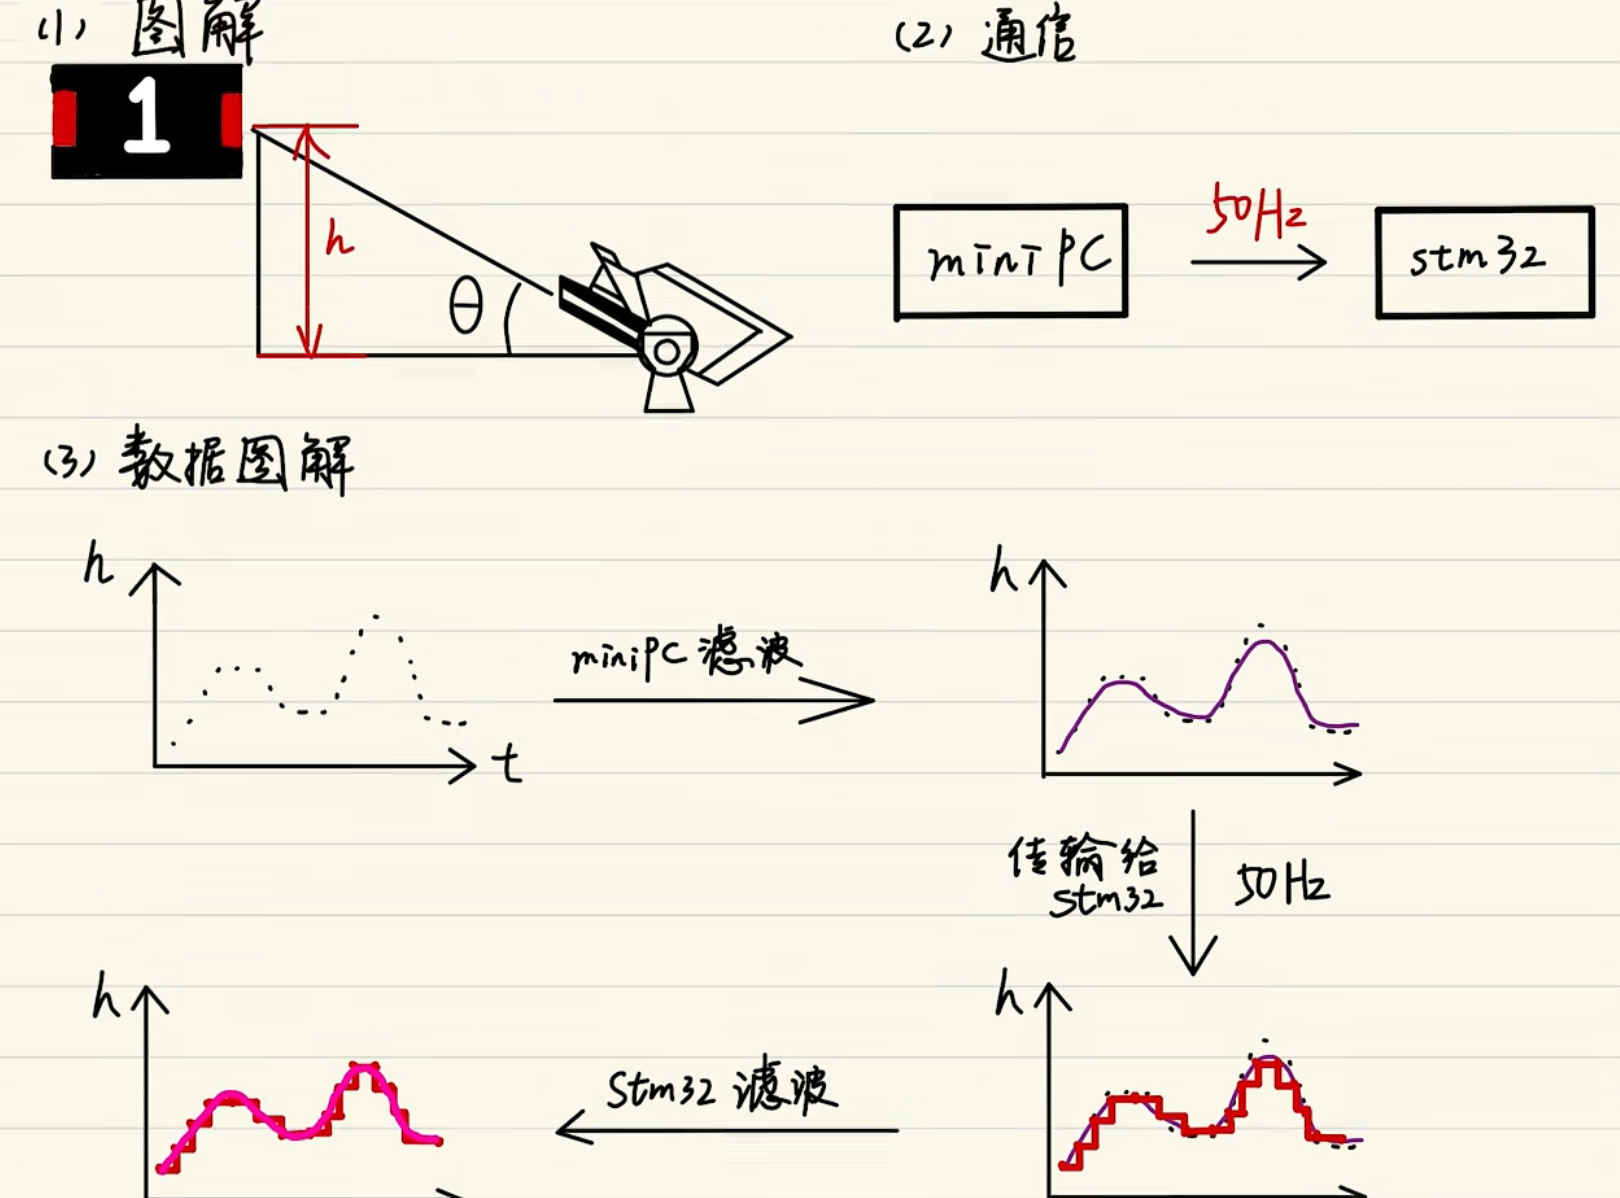 (1) 图解
(2) 通信
1
h
θ
miniPC
50Hz
stm32
(3) 数据图解
h
t
miniPC 滤波
h
传输给
stm32
50Hz
h
Stm32 滤波
h